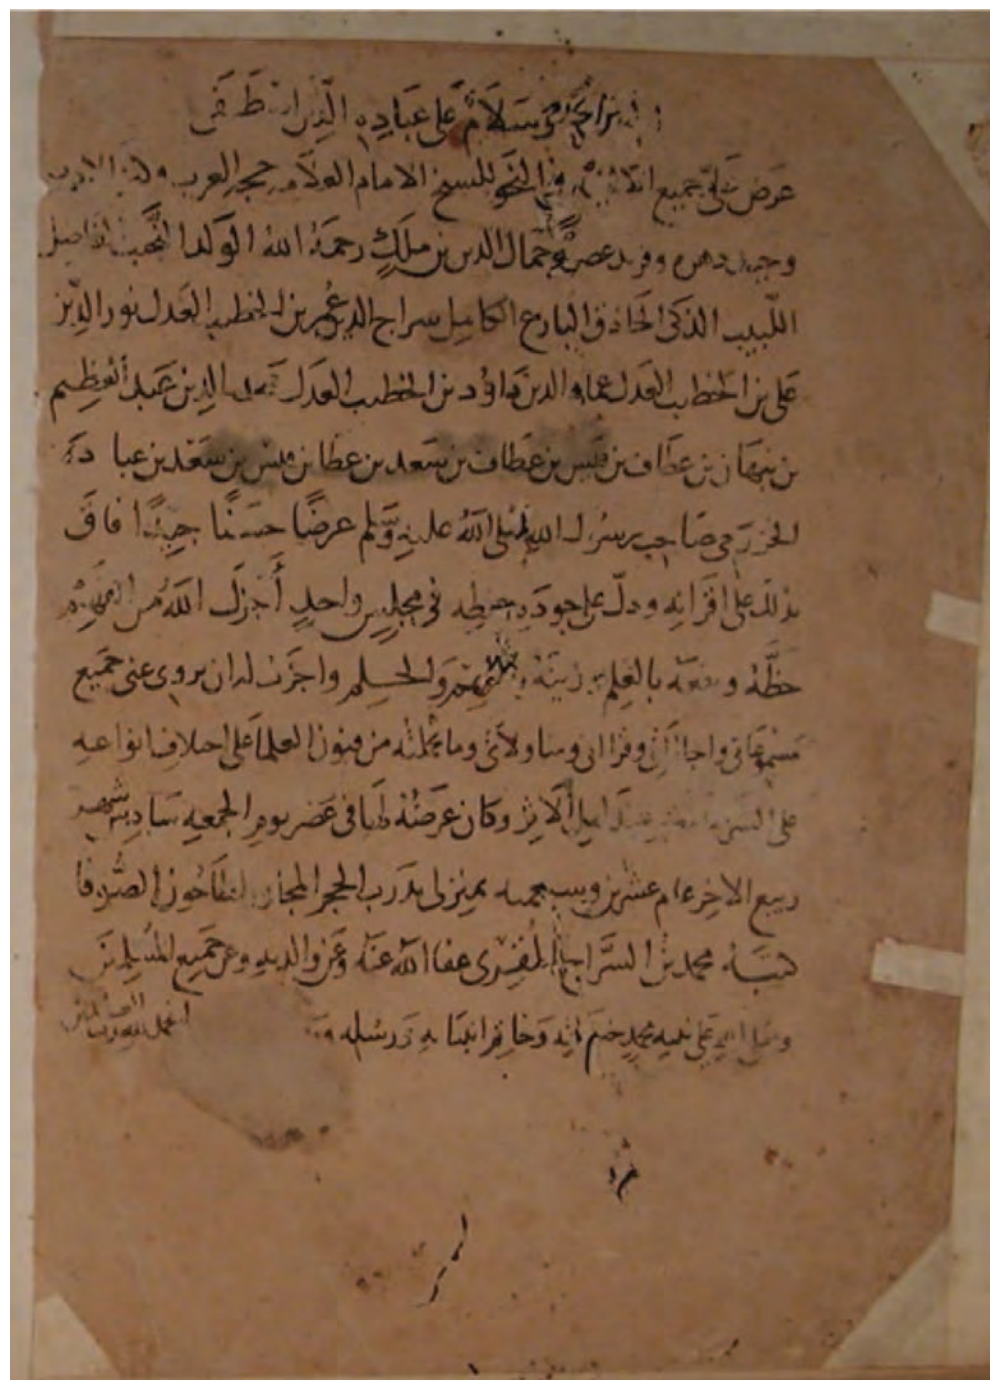 وسلام على عباده الذين اصطفى
عرض علي جميع في النحو للشيخ الامام العلامه حجه العرب
وفريد عصره جمال الدين بن ملك رحمه الله الولد النجيب
اللبيب الذكي الحاذق البارع الكامل سراج الدين عمر بن الخطيب العدل نور الدين
علي بن الخطيب العدل عماد الدين داوود بن الخطيب العدل الدين عبد العظيم
بن نبهان بن عطاف بن قيس بن عطاف بن سعد بن عطا بن قيس بن سعد بن عبادة
الخزرجي صاحب رسول الله صلى الله عليه وسلم عرضًا حسنًا جيدًا فاق
بذلك على اقرانه ودل على جودة حفظه في مجلس واحدٍ أجزل الله من
حظَّه ونفعه بالعلم وزينه والحلم واجزت له ان يروي عني جميع
مسموعاتي واجازاتي وقراءاتي ومناولاتي وما تحملته من فنون العلم على اختلاف انواعه
على عند اهل الاثر وكان عرضه لها في عصر يوم الجمعه سادس شهر
ربيع الاخر عام عشرين وسبعميه بمنزلي بدرب الحجر المجاور لطاحون
كتبه محمد بن السراج المقري عفا الله عنه وعن والديه وعن جميع المسلمين
وصلى الله على نبيه محمد وخاتم انبيائه ورسله